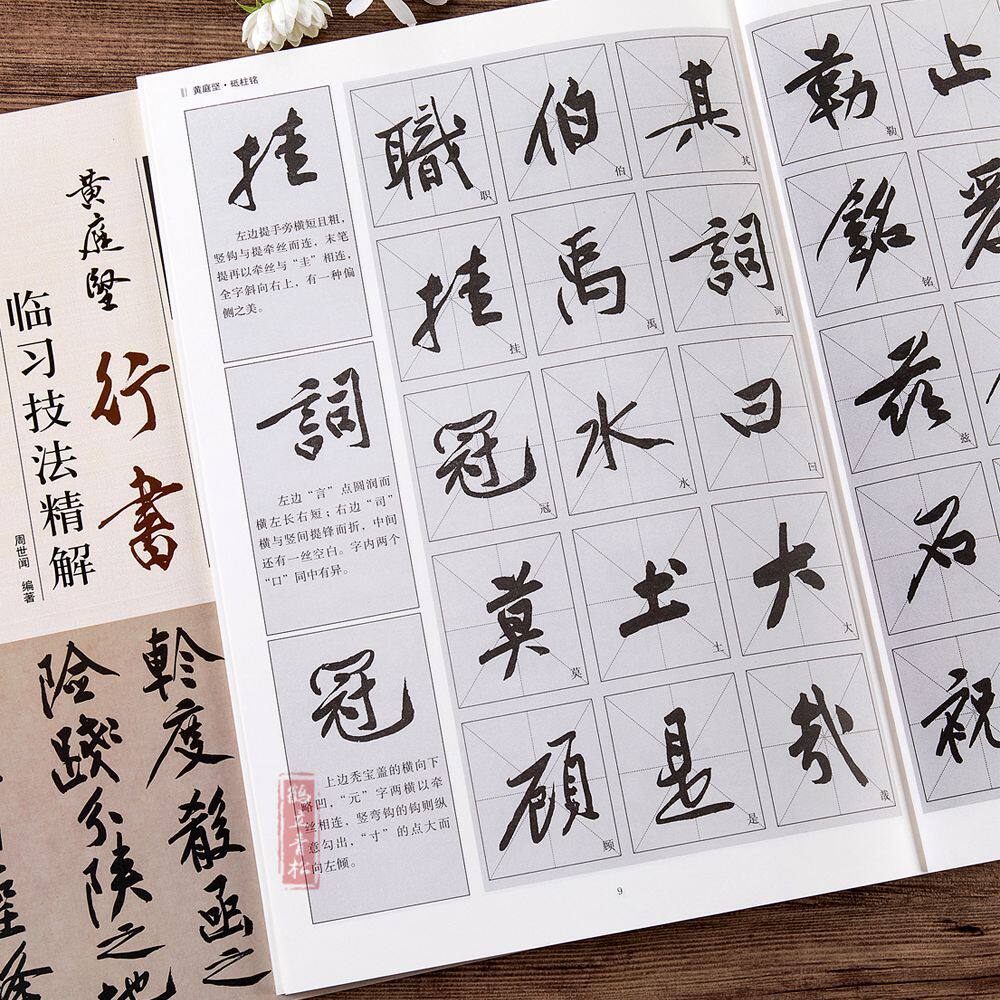 黄庭堅
行書
临习技法精解
周世闻 编著
軨度殽函之
险踐分陕之地
黄庭坚·砥柱铭
挂
左边提手旁横短且粗，
竖钩与提牵丝而连，末笔
提再以牵丝与“圭”相连，
全字斜向右上，有一种偏
侧之美。
詞
左边“言”点圆润而
横左长右短；右边“司”
横与竖间提锋而折，中间
还有一丝空白。字内两个
“口”同中有异。
冠
上边秃宝盖的横向下
略凹，“元”字两横以牵
丝相连，竖弯钩的钩则纵
意勾出，“寸”的点大而
向左倾。
其 其
詞 词
曰 曰
大 大
哉 哉
伯 伯
禹 禹
水 水
土 土
是 是
職 职
挂 挂
冠 冠
莫 莫
顧 顾
9
止
勒 勒
銘 铭
兹 兹
石
祝
鹤立青松